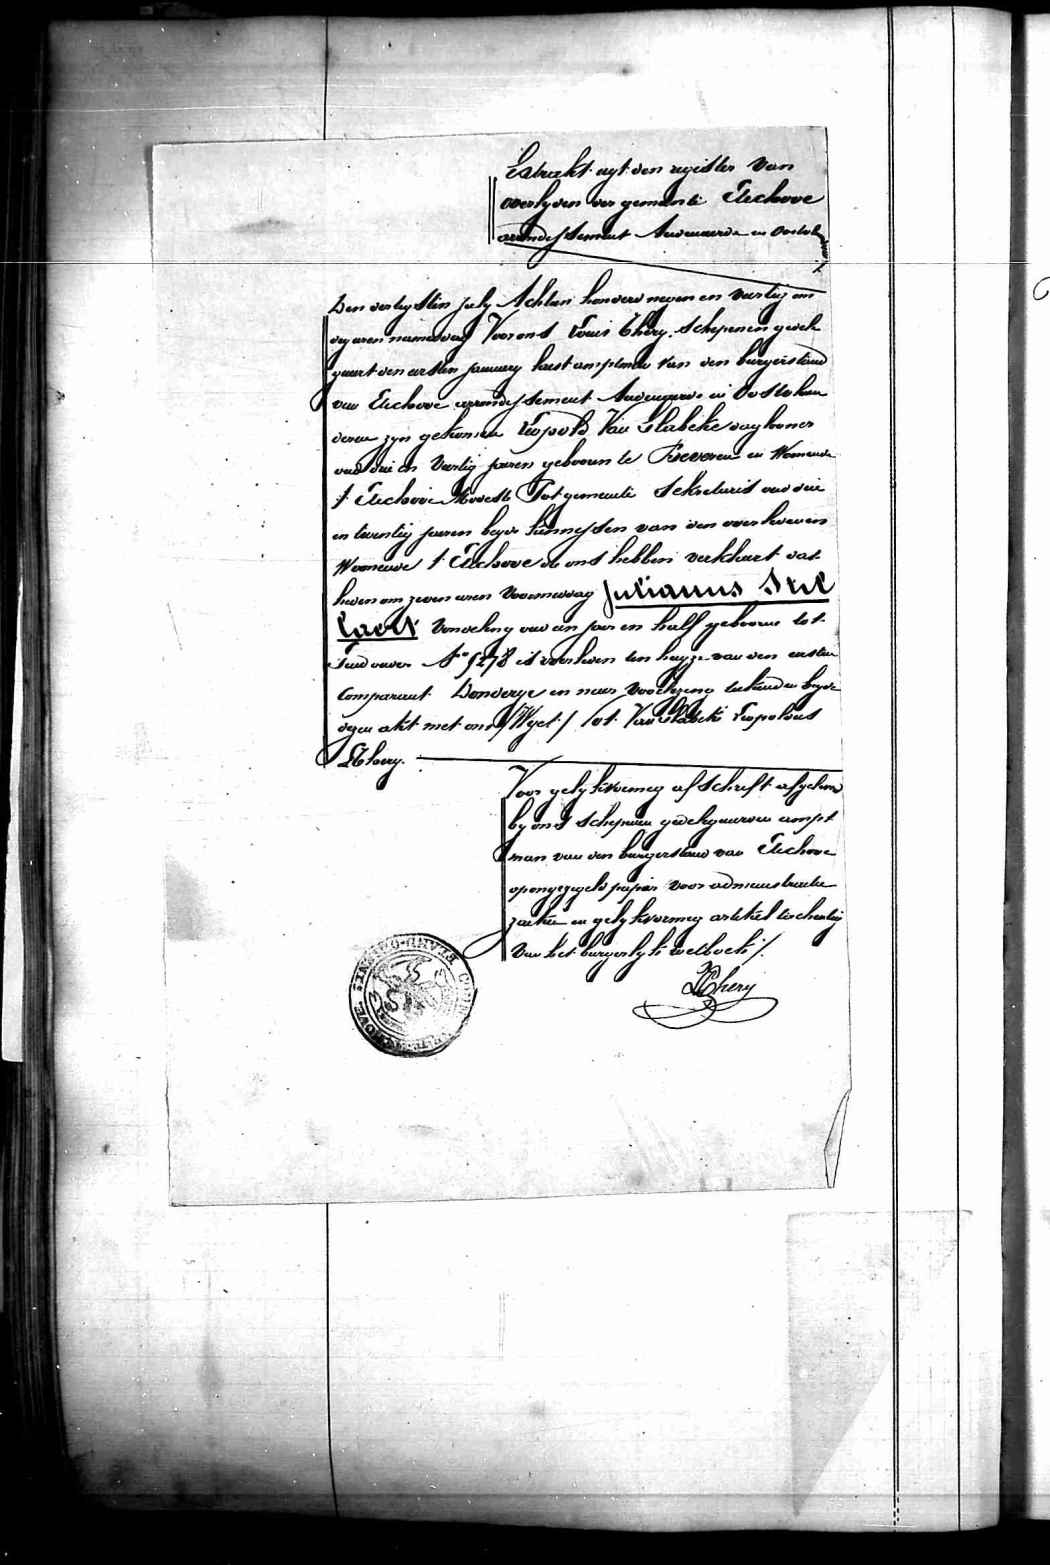 Extrackt uyt den register van
overlyden der gemeente Etichove
arrondissement Audenaerde in Oostvl
Den dertigsten july Achtien honderd negen en veertig om
dry uren namiddag Voor ons Louis Thery, Schepenen gedele
geert den eersten january laest amptenaer van den burgerstand
van Etichove arrondissement Audenaerde in Oostvlaen
deren zyn gekomen Leopold Van Glabeke daglooner
oud drie en veertig jaeren geboren te en Wonende
t' Etichove Modeste Tot gemeente Sekretaris oud drie
en twintig jaeren beyde kennissen van den overledenen
Wonende t' Etichove de ons hebben verklaert dat
heden om zeven uren Voormiddag Julianus Stil
laert Vondeling oud een jaer en half geboren tot
N° 9278 is overleden ten huyze van den eersten
Comparant Dondeyn en naer Voorlezing teekenden beyde
dezen akt met ons /Wyct/ Tot. Van Glabeke Leopoldus
L Thery.
Voor gelykvormig afschrift afgeleverd
by ons Schepenen gedelegueerden ampt
man van den burgerstand van Etichove
op ongezegeld papier voor administratie
zaeken en gelykvormig artikel tachentig
van het burgerlyk wetboek /.
L Thery